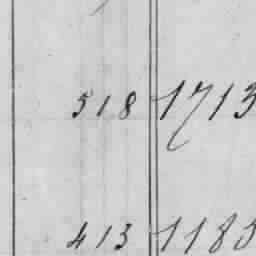 518 1713
413 1185